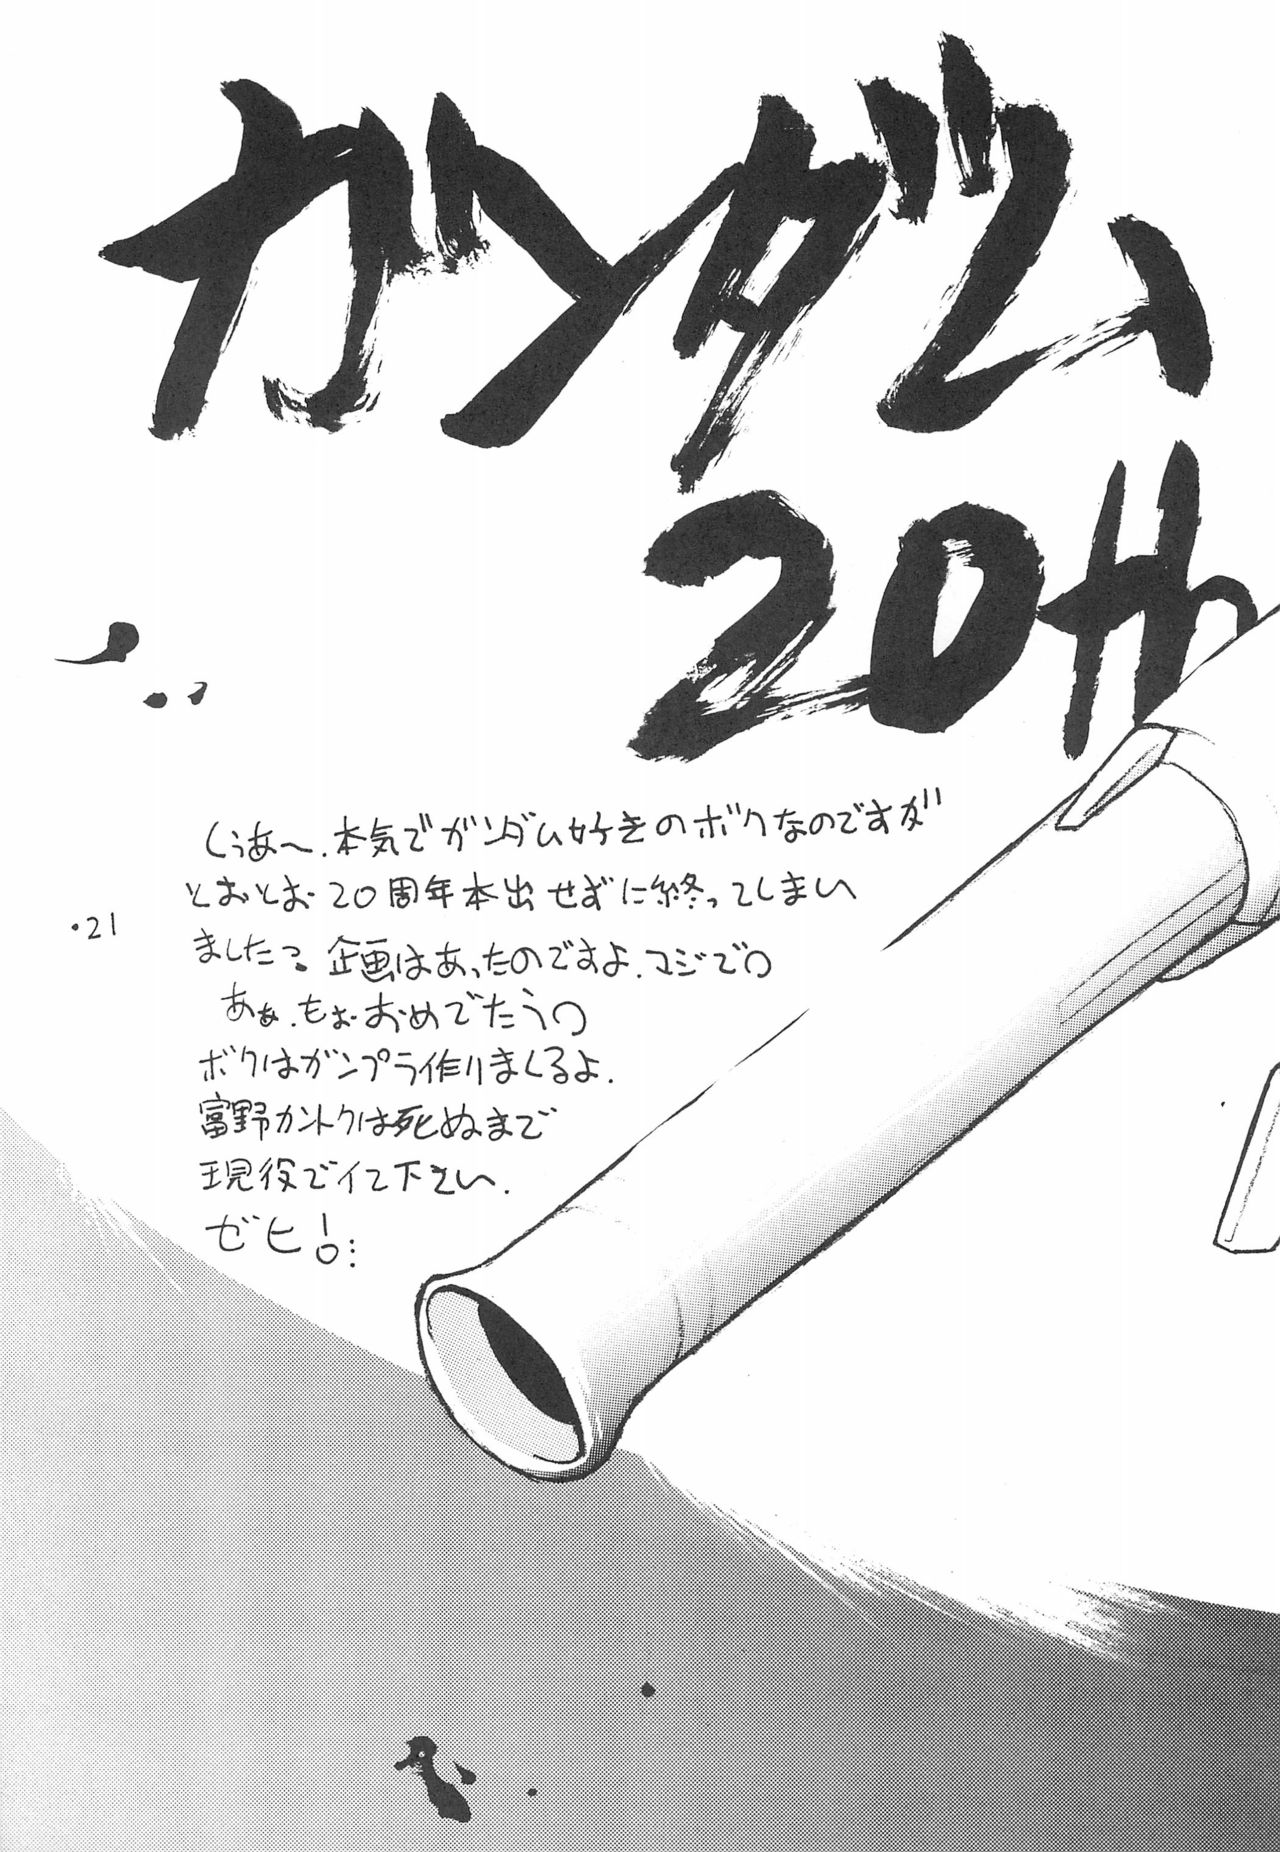 ガンダム
20th
くぅあ〜、本気でガンダム好きのボクなのですが
とおとお20周年本出せずに終ってしまい
ました。企画はあったのですよ、マジで。
あぁ、もぉおめでたう。
ボクはガンプラ作りまくるよ、
富野カントクは死ぬまで
現役でイて下さい、
ゼヒ!…
・21